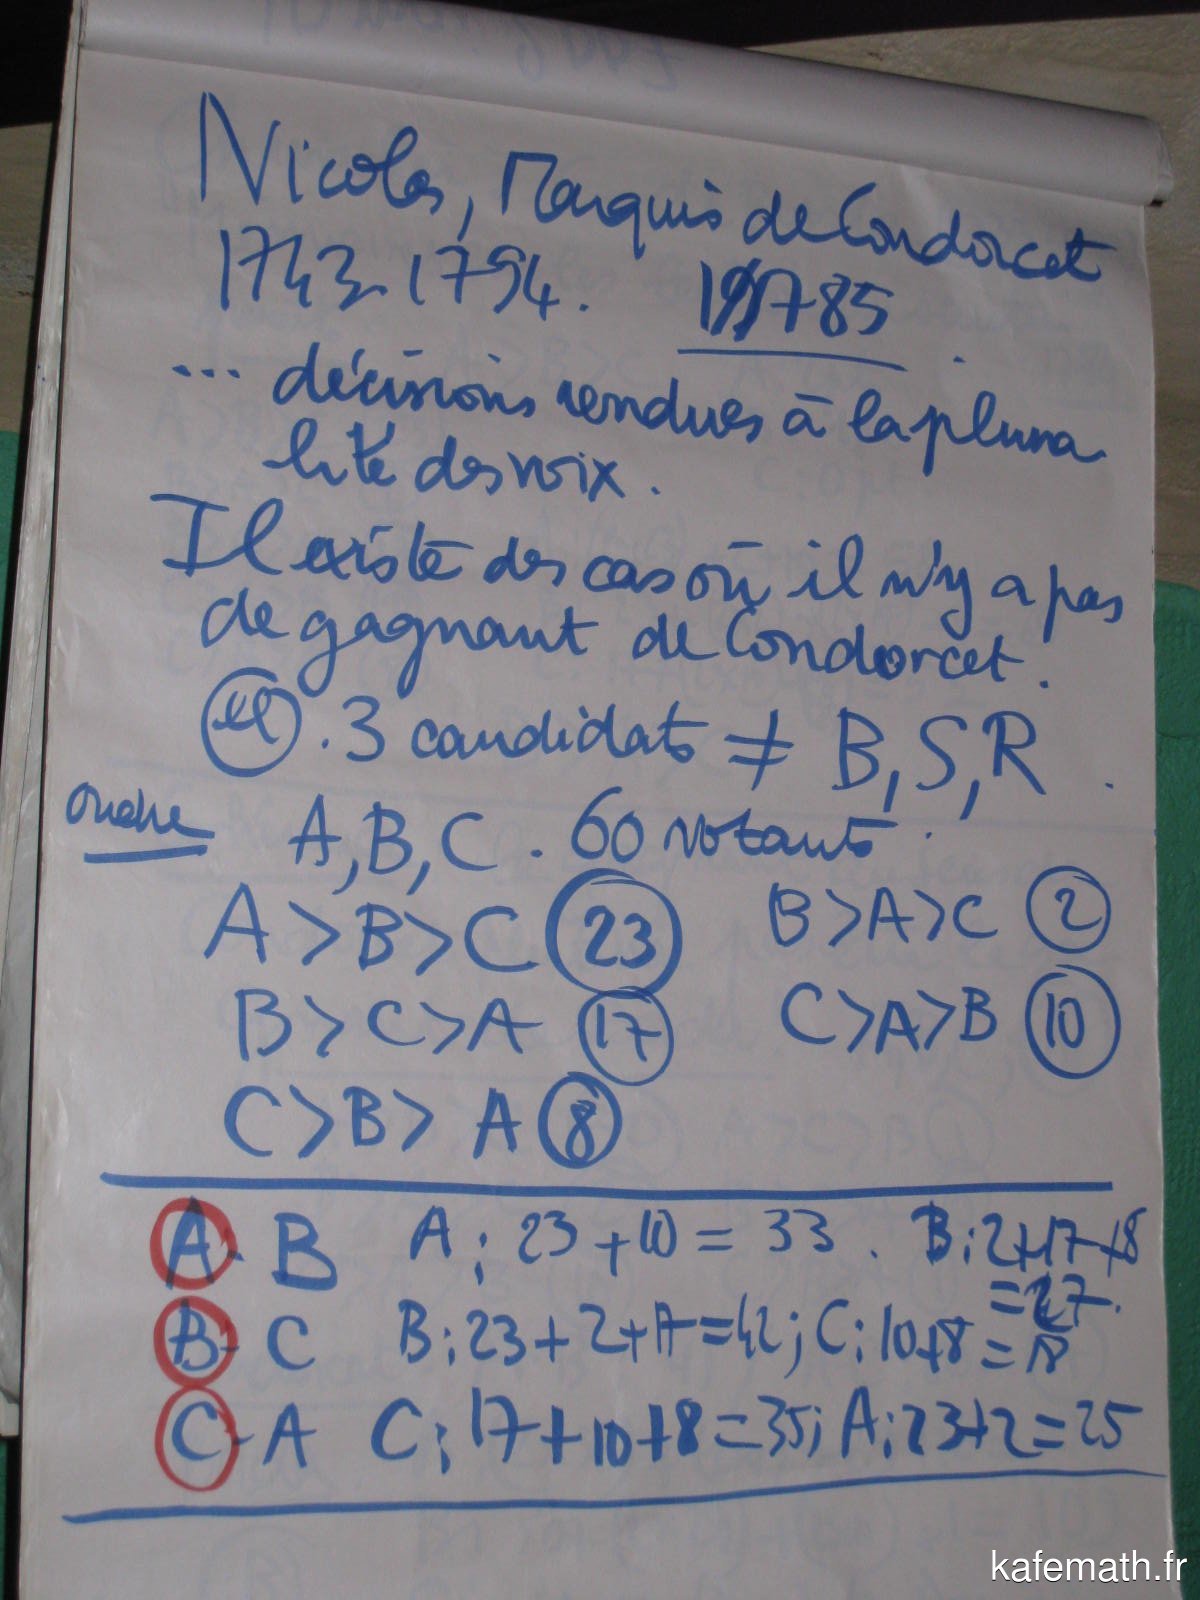 Nicolas, Marquis de Condorcet
1743-1794. 1785
... décisions rendues à la plura
lité des voix.
Il existe des cas où il n'y a pas
de gagnant de Condorcet.
ex . 3 candidats ≠ B, S, R .
ordre A, B, C . 60 votants .
A > B > C 23 B > A > C 2
B > C > A 17 C > A > B 10
C > B > A 8
A - B A ; 23 + 10 = 33 . B ; 2 + 17 + 8
= 27.
B - C B ; 23 + 2 + 17 = 42 ; C ; 10 + 8 = 18
C - A C ; 17 + 10 + 8 = 35 ; A ; 23 + 2 = 25
kafemath.fr